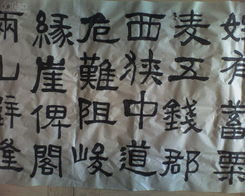 姓有蓄粟
麦五錢郡
西狹中道
危難阻峻
緣崖俾閣
兩山